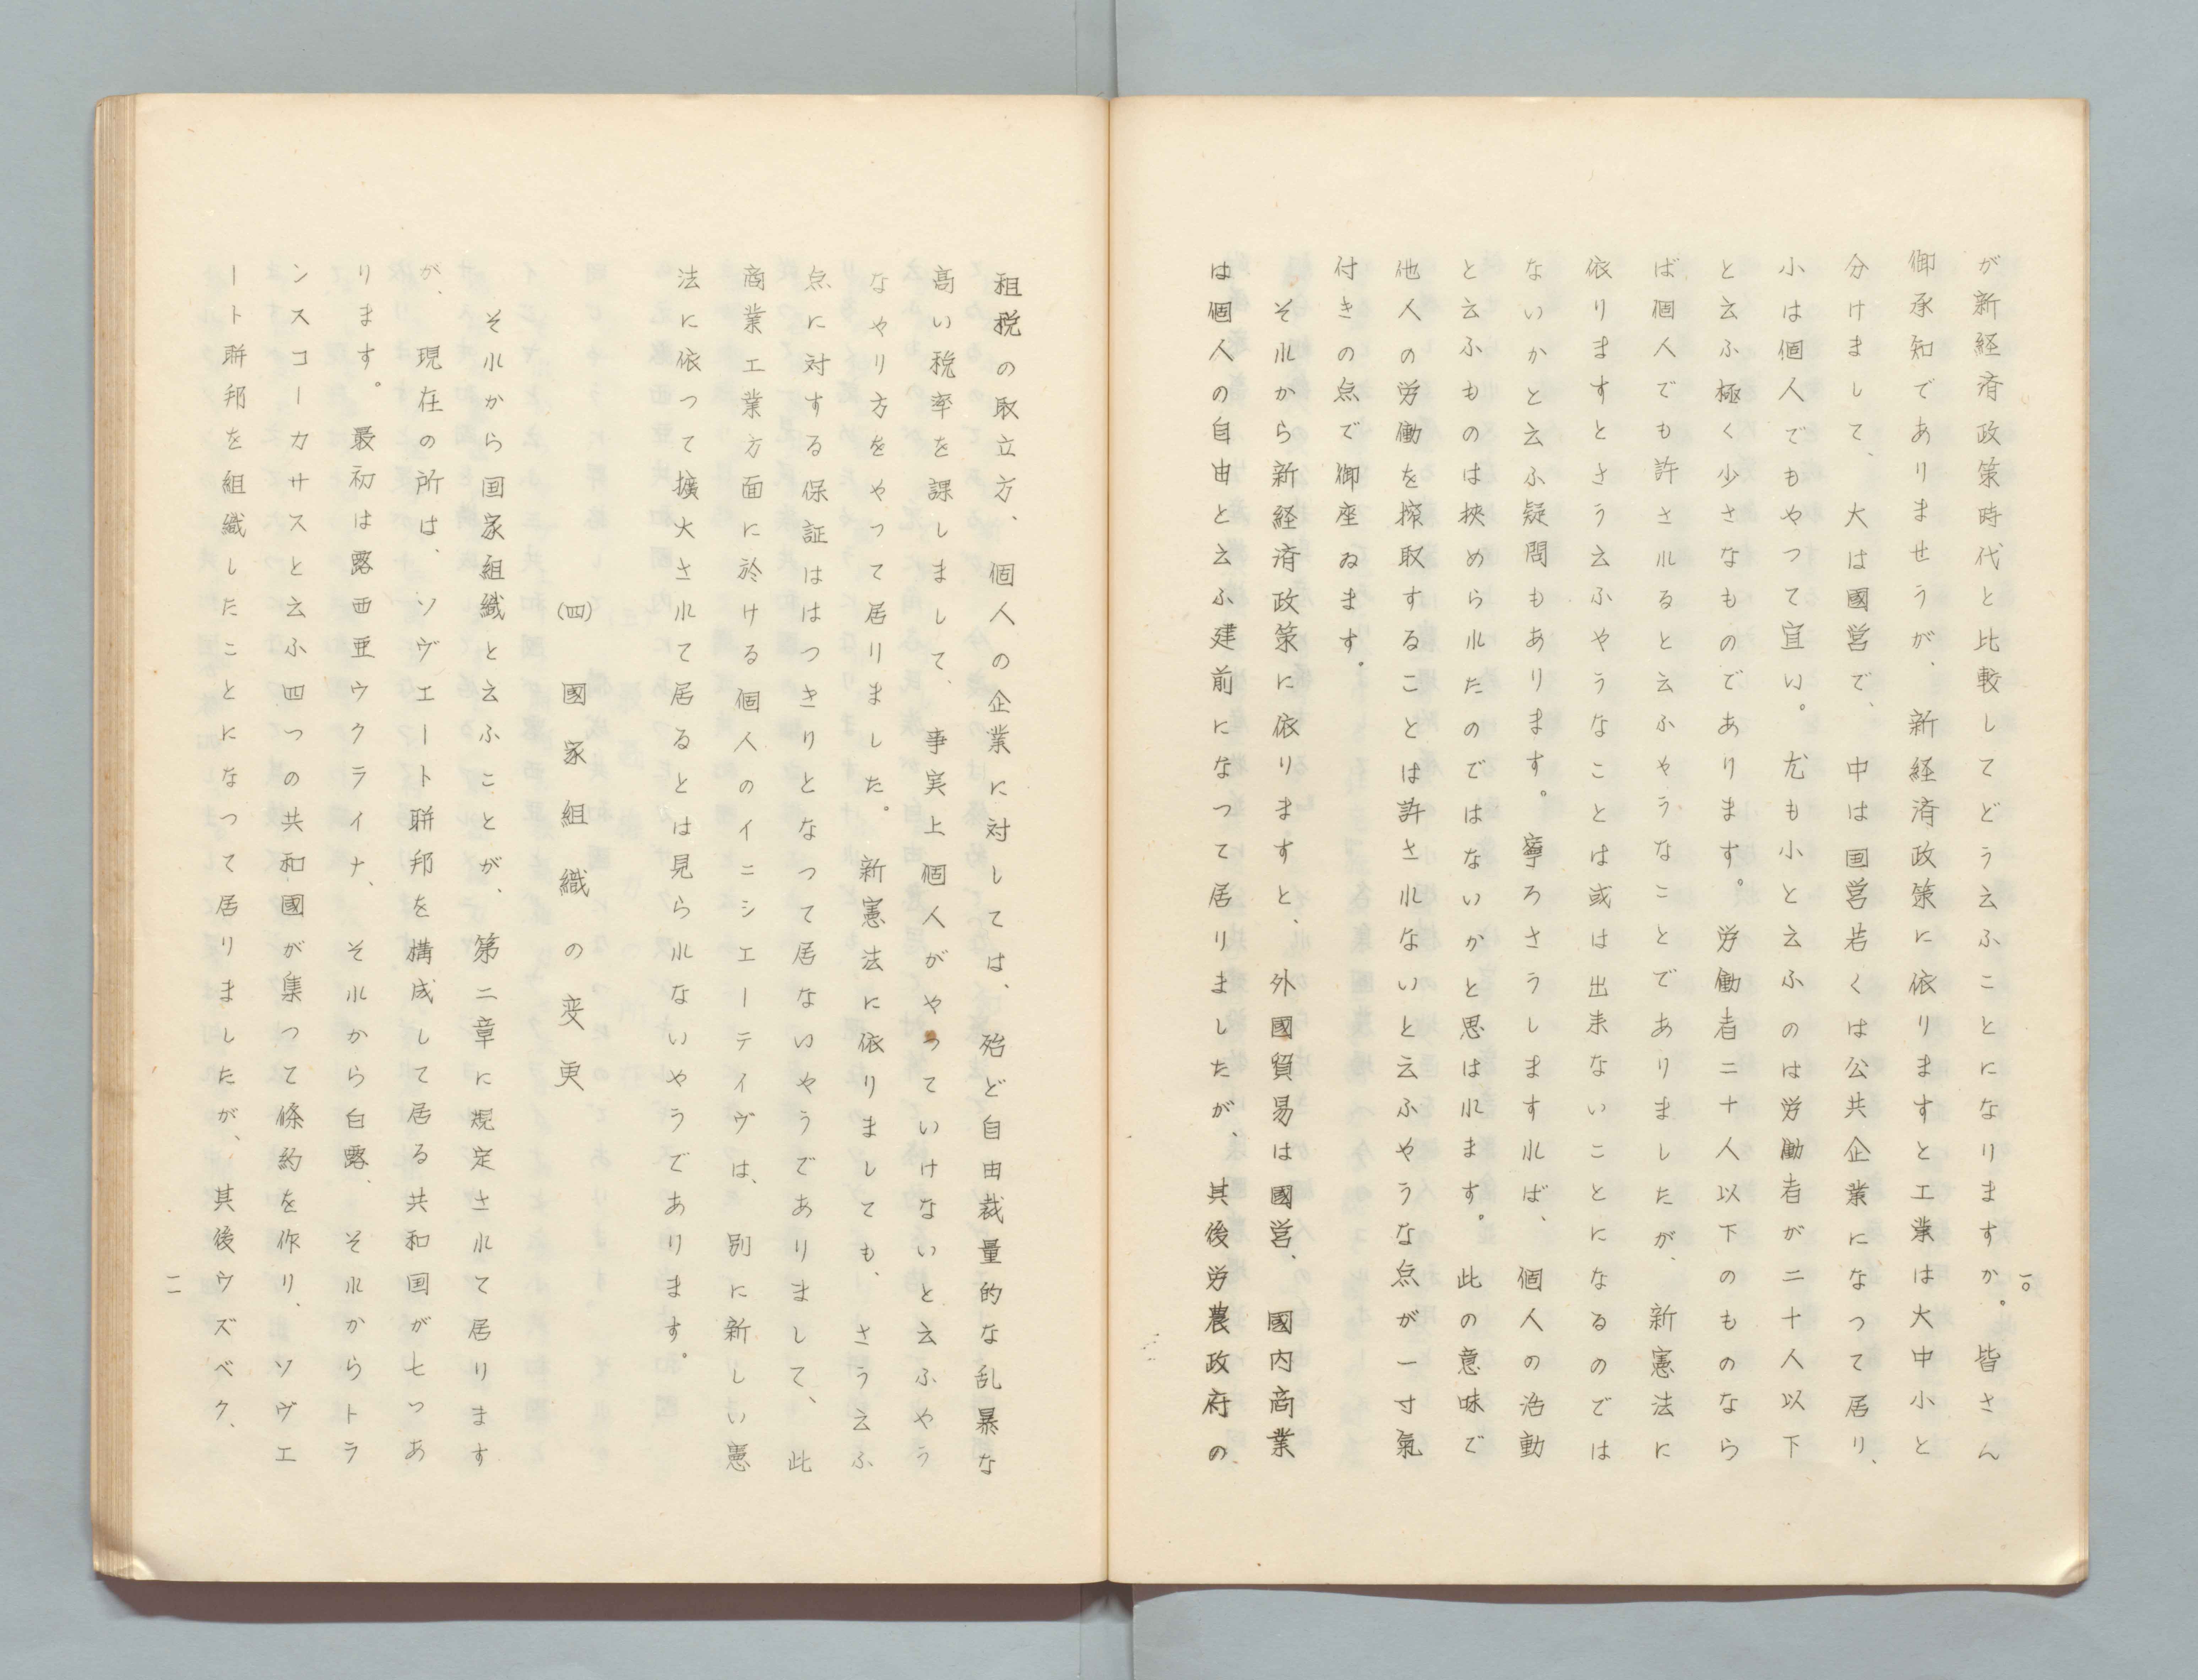 が新経済政策時代と比較してどう云ふことになりますか。皆さん
御承知でありませうが、新経済政策に依りますと工業は大中小と
分けまして、大は國営で、中は国営若くは公共企業になって居り、
小は個人でもやつて宜い。尤も小と云ふのは労働者が二十人以下
と云ふ極く少さなものであります。労働者二十人以下のものなら
ば個人でも許されると云ふやうなことでありましたが、新憲法に
依りますとさう云ふやうなことは或は出来ないことになるのでは
ないかと云ふ疑問もあります。寧ろさうしますれば、個人の活動
と云ふものは挾められたのではないかと思はれます。此の意味で
他人の労働を搾取することは許されないと云ふやうな点が一寸氣
付きの点で御座ゐます。
それから新経済政策に依りますと、外國貿易は國営、國内商業
は個人の自由と云ふ建前になつて居りましたが、其後労農政府の
一〇
租税の取立方、個人の企業に対しては、殆ど自由裁量的な乱暴な
高い税率を課しまして、事実上個人がやつていけないと云ふやう
なやり方をやつて居りました。新憲法に依りましても、さう云ふ
点に対する保証ははつきりとなつて居ないやうでありまして、此
商業工業方面に於ける個人のイニシエーテイヴは、別に新しい憲
法に依つて擴大されて居るとは見られないやうであります。
(四)國家組織の変更
それから国家組織と云ふことが、第二章に規定されて居ります
が、現在の所は、ソヴエート聯邦を構成して居る共和国が七つあ
ります。最初は露西亜ウクライナ、それから白露、それからトラ
ンスコーカサスと云ふ四つの共和國が集つて條約を作り、ソヴエ
ート聯邦を組織したことになつて居りましたが、其後ウズベク、
一一